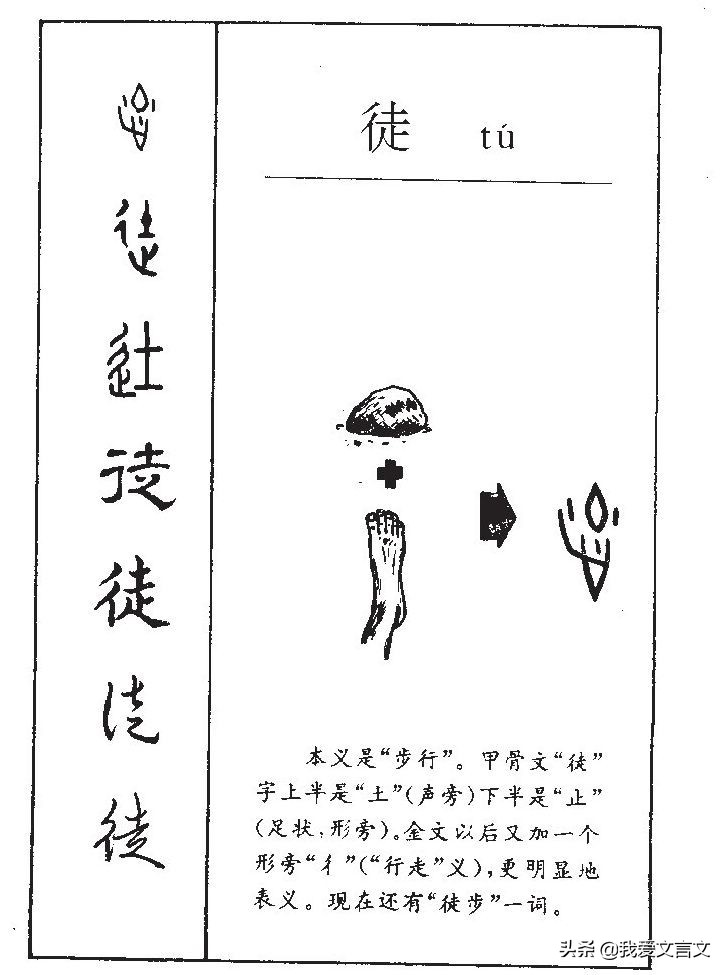 徒 tú
徒
徒
徒
徒
徒
徒
本义是“步行”。甲骨文“徒”
字上半是“土”(声旁)下半是“止”
(足状,形旁)。金文以后又加一个
形旁“彳”(“行走”义),更明显地
表义。现在还有“徒步”一词。
头条 @我爱文言文